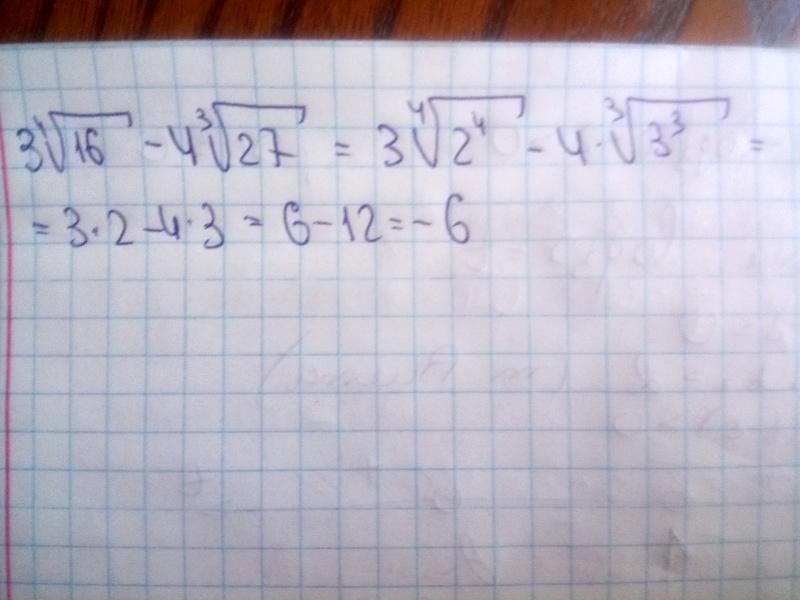 3∜16 - 4∛27 = 3∜2⁴ - 4·∛3³ =
= 3·2 - 4·3 = 6 - 12 = - 6